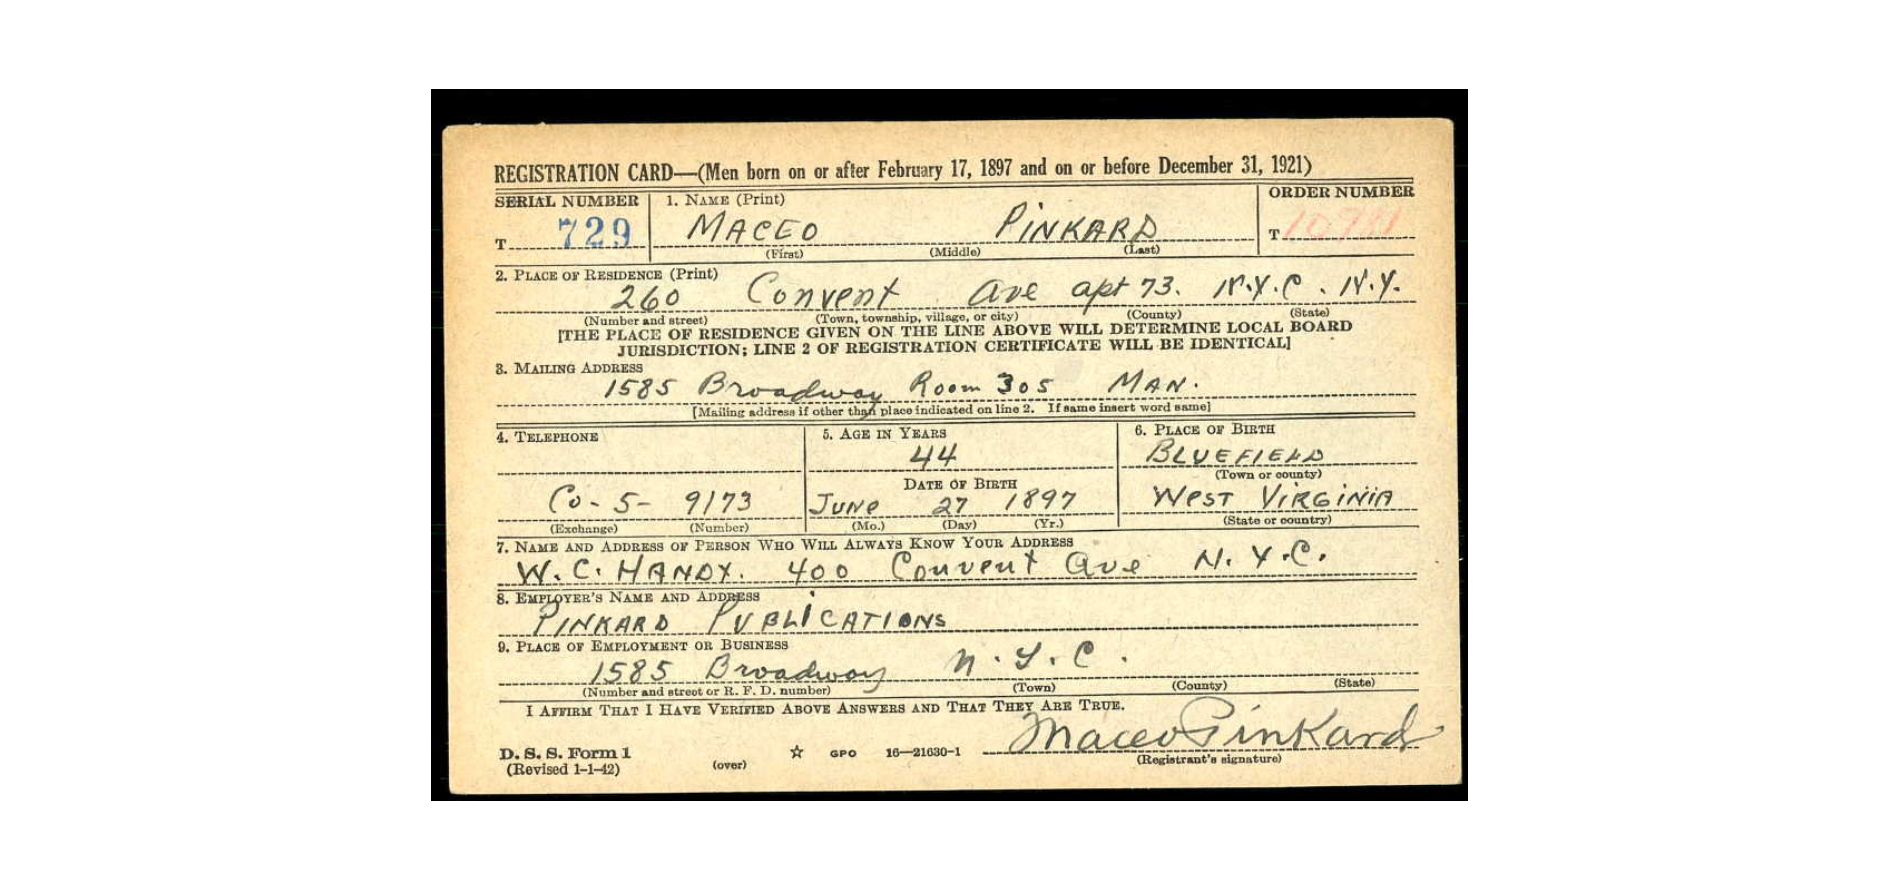 REGISTRATION CARD—(Men born on or after February 17, 1897 and on or before December 31, 1921)
SERIAL NUMBER 1. NAME (Print) ORDER NUMBER
T 729 MACEO PINKARD T
(First) (Middle) (Last)
2. PLACE OF RESIDENCE (Print)
260 Convent Ave apt 73. N.Y.C. N.Y.
(Number and street) (Town, township, village, or city) (County) (State)
[THE PLACE OF RESIDENCE GIVEN ON THE LINE ABOVE WILL DETERMINE LOCAL BOARD
JURISDICTION; LINE 2 OF REGISTRATION CERTIFICATE WILL BE IDENTICAL]
3. MAILING ADDRESS
1585 Broadway Room 305 MAN.
[Mailing address if other than place indicated on line 2. If same insert word same]
4. TELEPHONE 5. AGE IN YEARS 6. PLACE OF BIRTH
44 BLUEFIELD
DATE OF BIRTH (Town or county)
Co-5- 9173 JUNE 27 1897 WEST VIRGINIA
(Exchange) (Number) (Mo.) (Day) (Yr.) (State or country)
7. NAME AND ADDRESS OF PERSON WHO WILL ALWAYS KNOW YOUR ADDRESS
W.C. HANDY. 400 Convent Ave N.Y.C.
8. EMPLOYER'S NAME AND ADDRESS
PINKARD PUBLICATIONS
9. PLACE OF EMPLOYMENT OR BUSINESS
1585 Broadway N.Y.C.
(Number and street or R. F. D. number) (Town) (County) (State)
I AFFIRM THAT I HAVE VERIFIED ABOVE ANSWERS AND THAT THEY ARE TRUE.
Maceo Pinkard
D. S. S. Form 1 ☆ GPO 16—21630-1
(Revised 1-1-42) (over) (Registrant's signature)